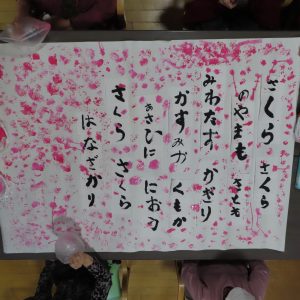 さくら さくら
のやまも さとも
みわたす かぎり
かすみか くもか
あさひに におう
さくら さくら
はなざかり